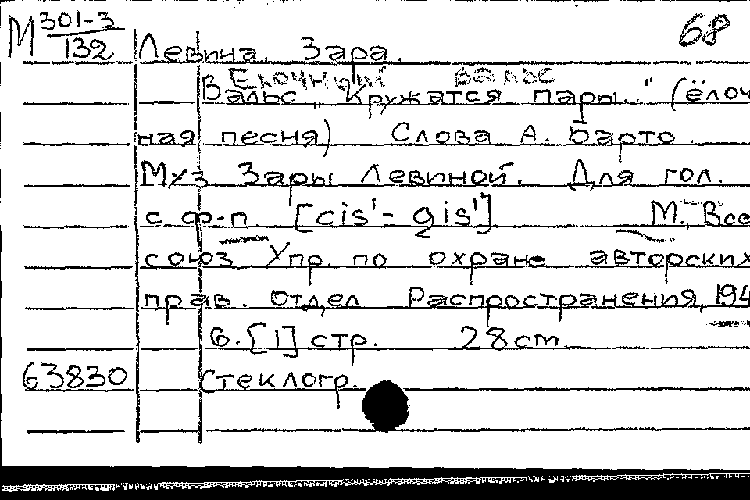 М 301-3/132
68
Левина Зара.
Елочный вальс
Вальс „Кружатся пары..." (ёлоч
ная песня) Слова А. Барто
Муз Зары Левиной. Для гол.
с ф-п. [cis¹- gis¹] М., Все
союз Упр. по охране авторских
прав. отдел Распространения, 194
6. [1] стр. 28 cm
63830 Стеклогр.